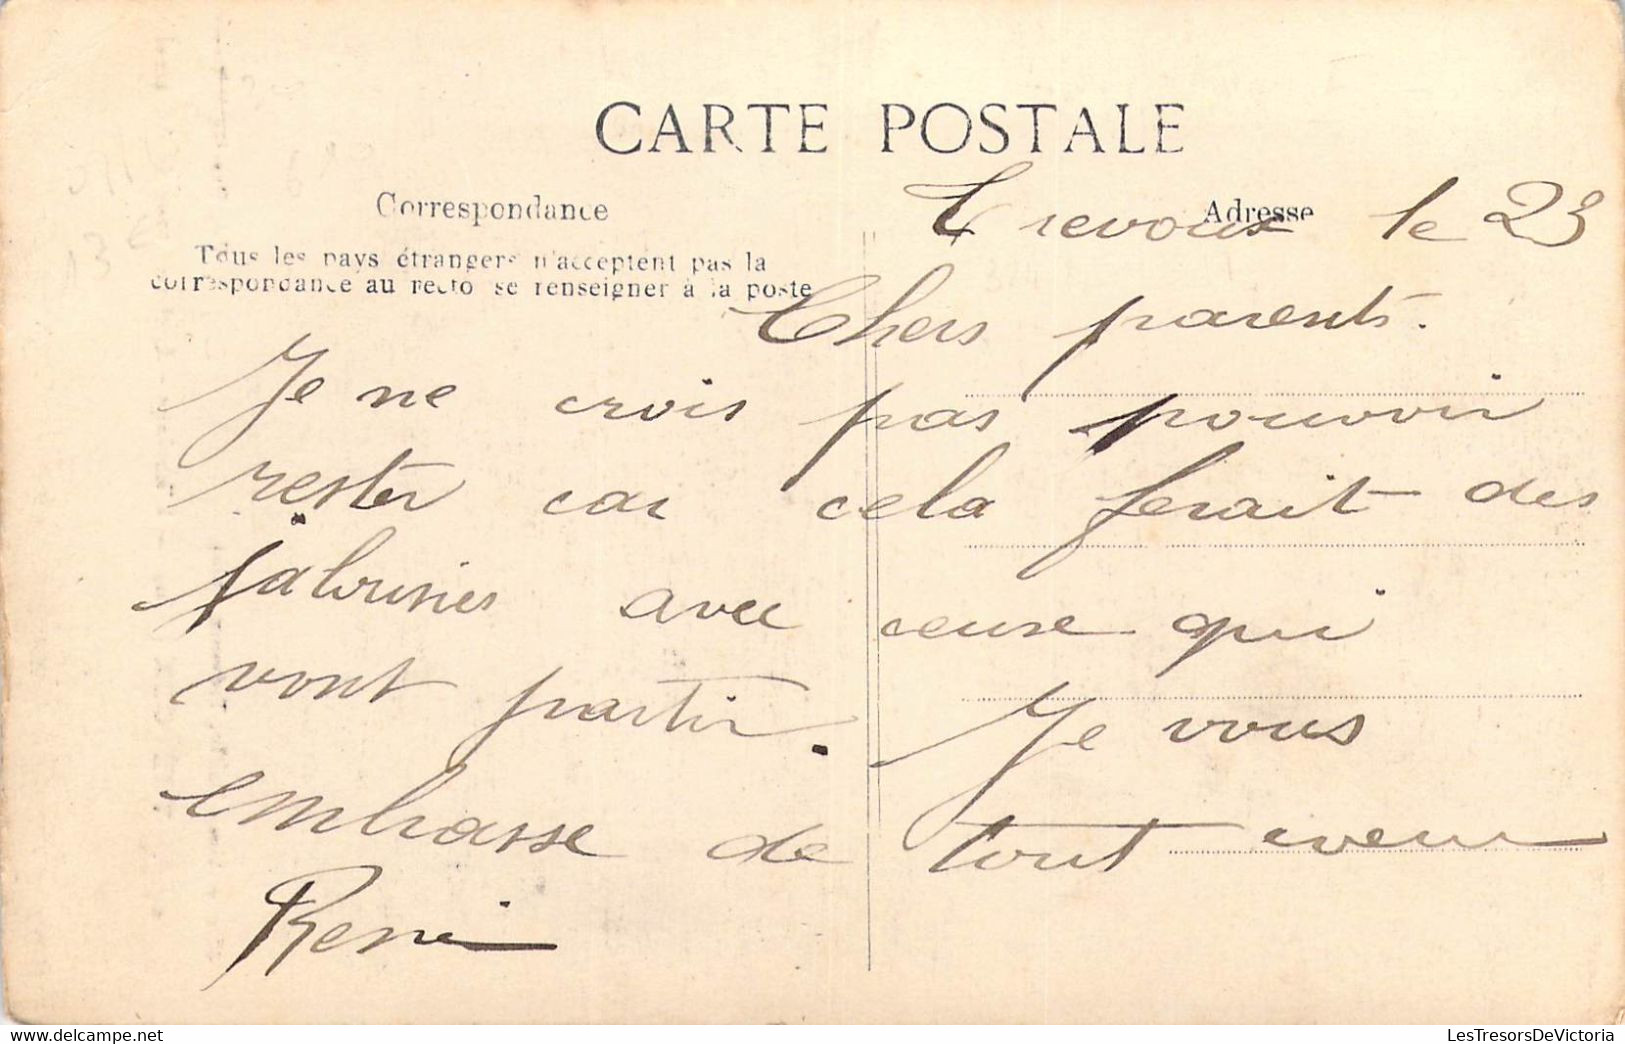 CARTE POSTALE
Correspondance
Adresse
Tous les pays étrangers n'acceptent pas la
correspondance au recto se renseigner à la poste
Trevoux le 23
Chers parents.
Je ne crois pas pouvoir
rester car cela ferait des
jalousies avec ceux qui
vont partir. Je vous
embrasse de tout coeur
René
LesTresorsDeVictoria
delcampe.net